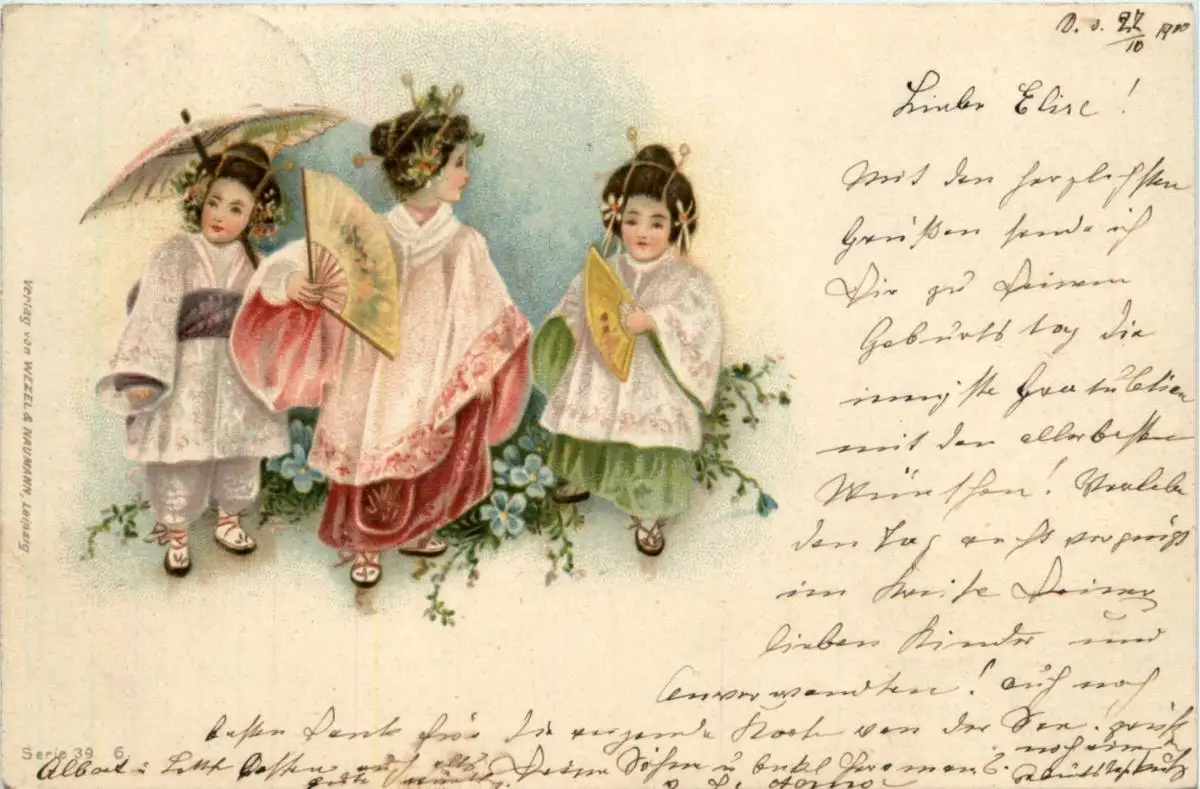 D. d. 27/10 1900
Liebe Elise!
Mit den herzlichsten
Grüßen sende ich
Dir zu Deinem
Geburtstag die
innigste Gratulation
mit den allerbesten
Wünschen! Verlebe
den Tag recht vergnügt
im Kreise Deiner
lieben Kinder und
Anverwandten! Auch noch
besten Dank für die Karte von der
Deine Söhne u. Onkel Hermann
Verlag von WEZEL & NAUMANN, Leipzig.
Serie 39 6.